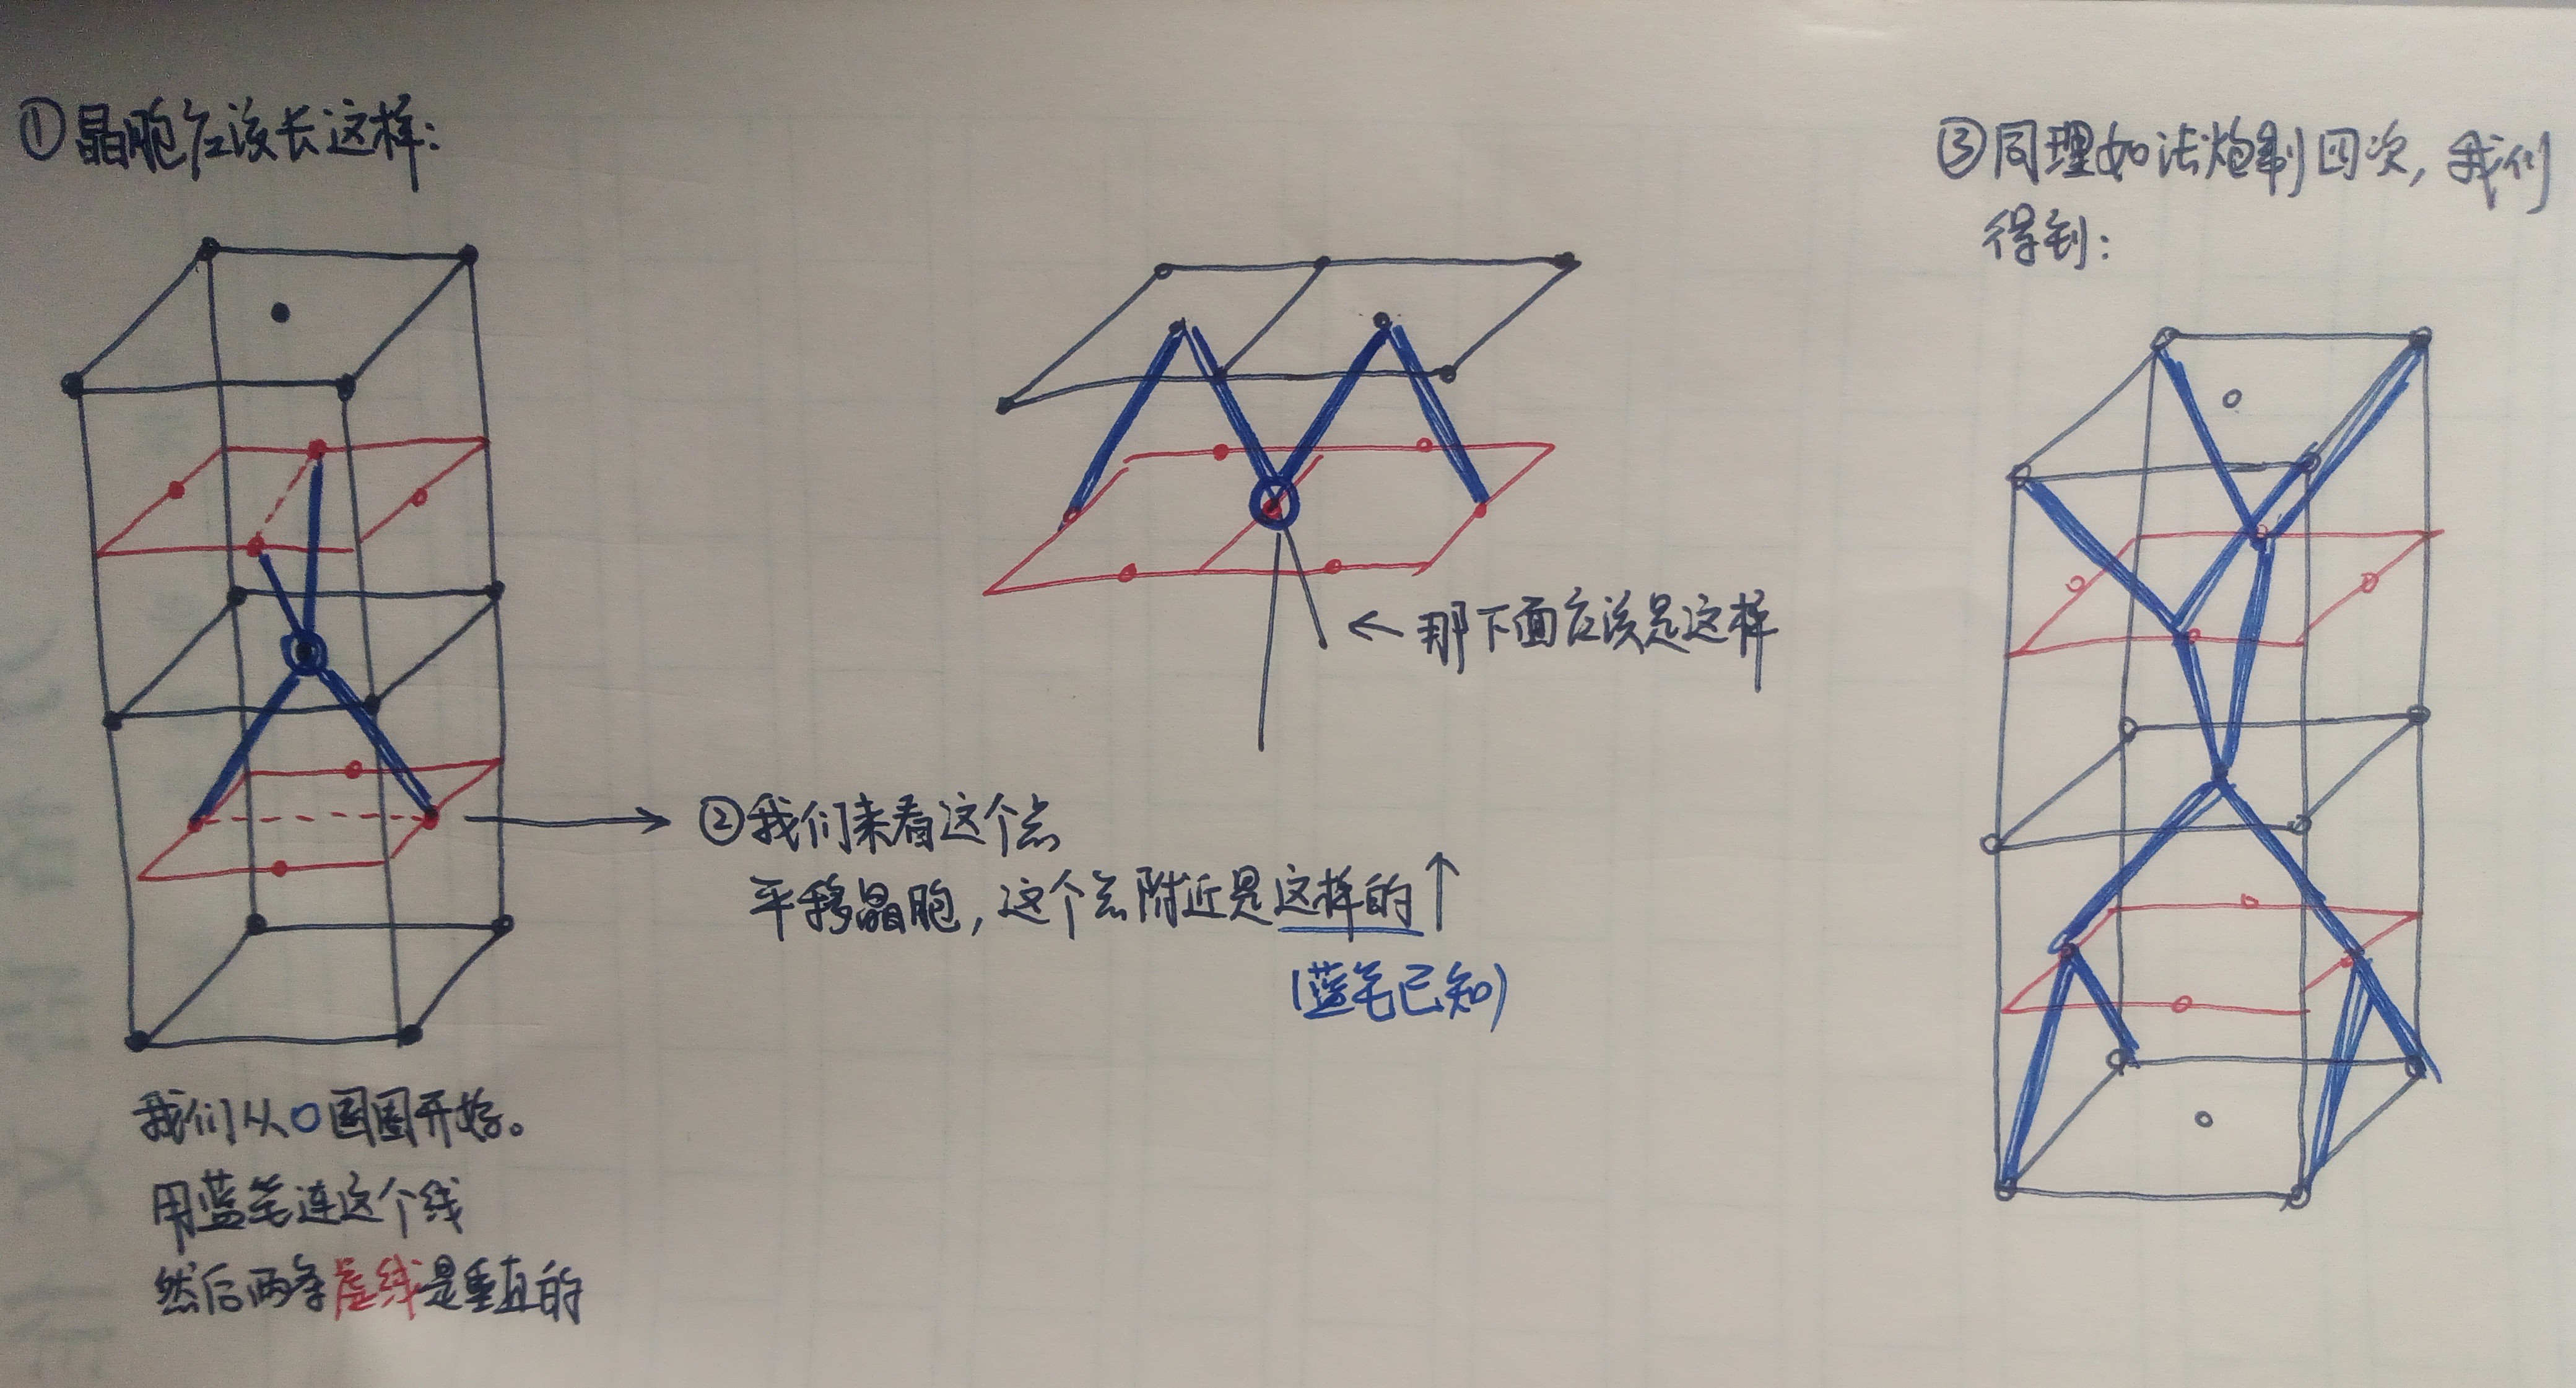 ①晶胞应该长这样:
我们从O圈圈开始。
用蓝笔连这个线
然后两条虚线是垂直的
②我们来看这个点
平移晶胞，这个点附近是这样的↑
(蓝笔已知)
←那下面应该是这样
③同理如法炮制四次，我们
得到: